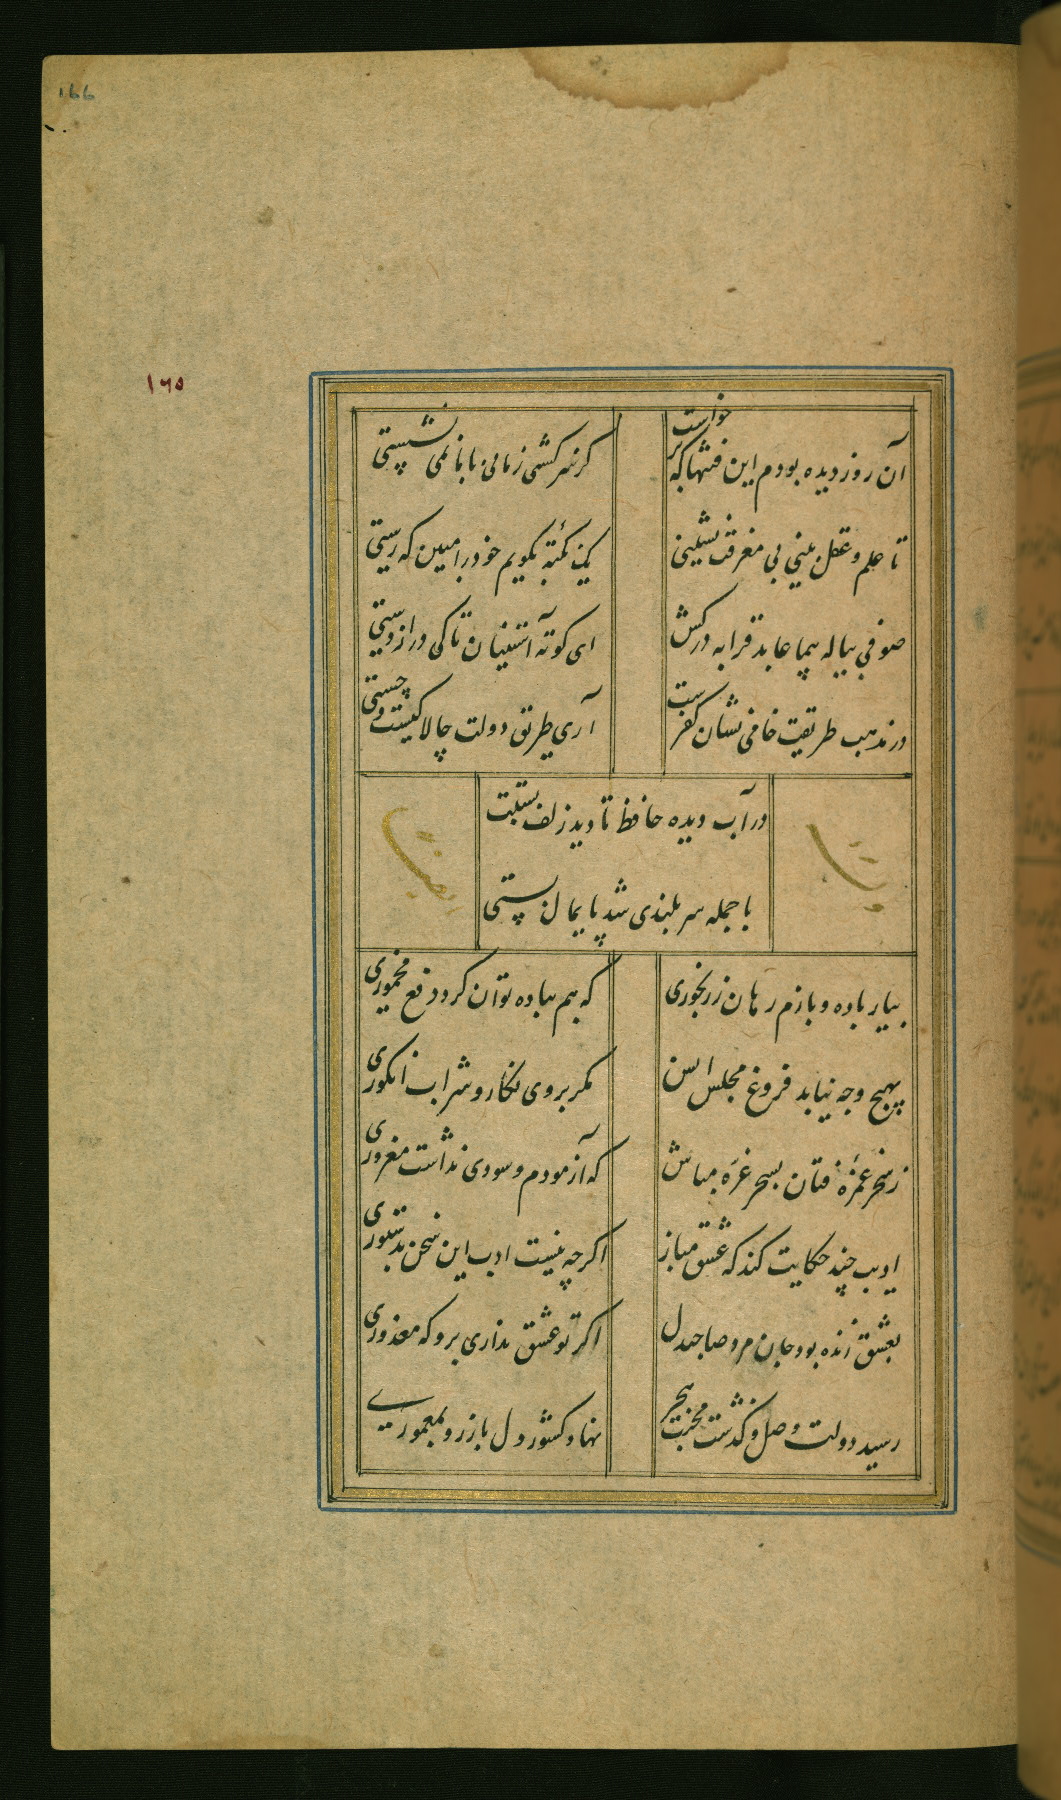 166
۱۶۵
آن روز دیده بودم این فتنها که برخواست
کز سرکشی زمانی با ما نمی نشستی
تا علم و عقل بینی بی معرفت نشینی
یک نکته بگویم خود را مبین که رستی
صوفی پیاله پیما عابد قرابه درکش
ای کوته آستینان تا کی دراز دستی
در مذهب طریقت خامی نشان کفرست
آری طریق دولت چالاکیست و چستی
در آب دیده حافظ تا دید زلف پستت
با جمله سر بلندی شد پایمال پستی
بیار باده و بازم رهان ز رنجوری
که هم بباده توان کرد دفع مخموری
بهیچ وجه نیابد فروغ مجلس انس
مگر بروی نگار و شراب انگوری
ز سحر غمزهٔ فتان بسحر غره مباش
که آزمودم و سودی نداشت مغروری
ادیب چند حکایت کند که عشق مباز
اگرچه نیست ادب این سخن بدستوری
بعشق زنده بود جان مرد صاحبدل
اگر تو عشق نداری برو که معذوری
رسید دولت وصل و گذشت محنت هجر
نهاد کشور دل باز رو بمعموری